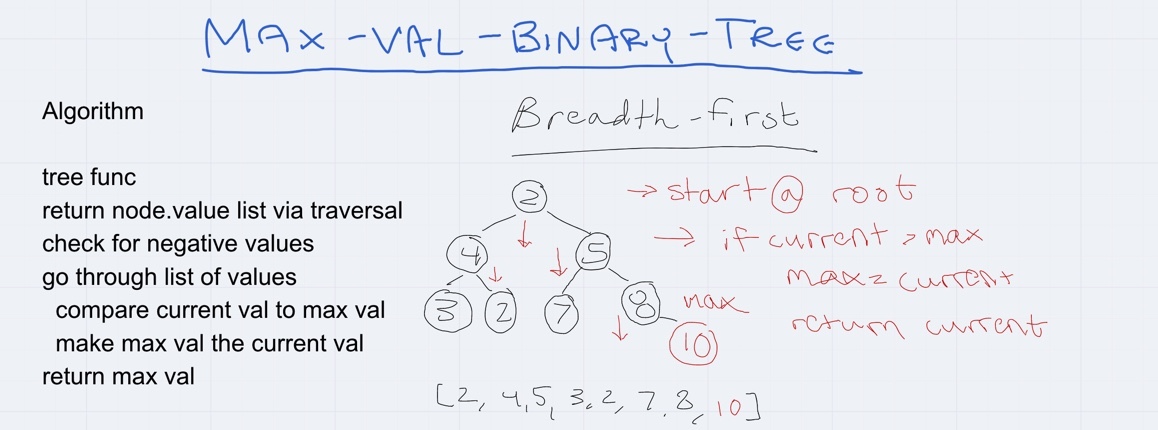 MAX-VAL-BINARY-TREE
Algorithm
Breadth-first
tree func
return node.value list via traversal
check for negative values
go through list of values
compare current val to max val
make max val the current val
return max val
2
4 5
3 2 7 8
max
10
→ start @ root
→ if current > max
max = current
return current
[2, 4,5, 3,2, 7,8, 10]